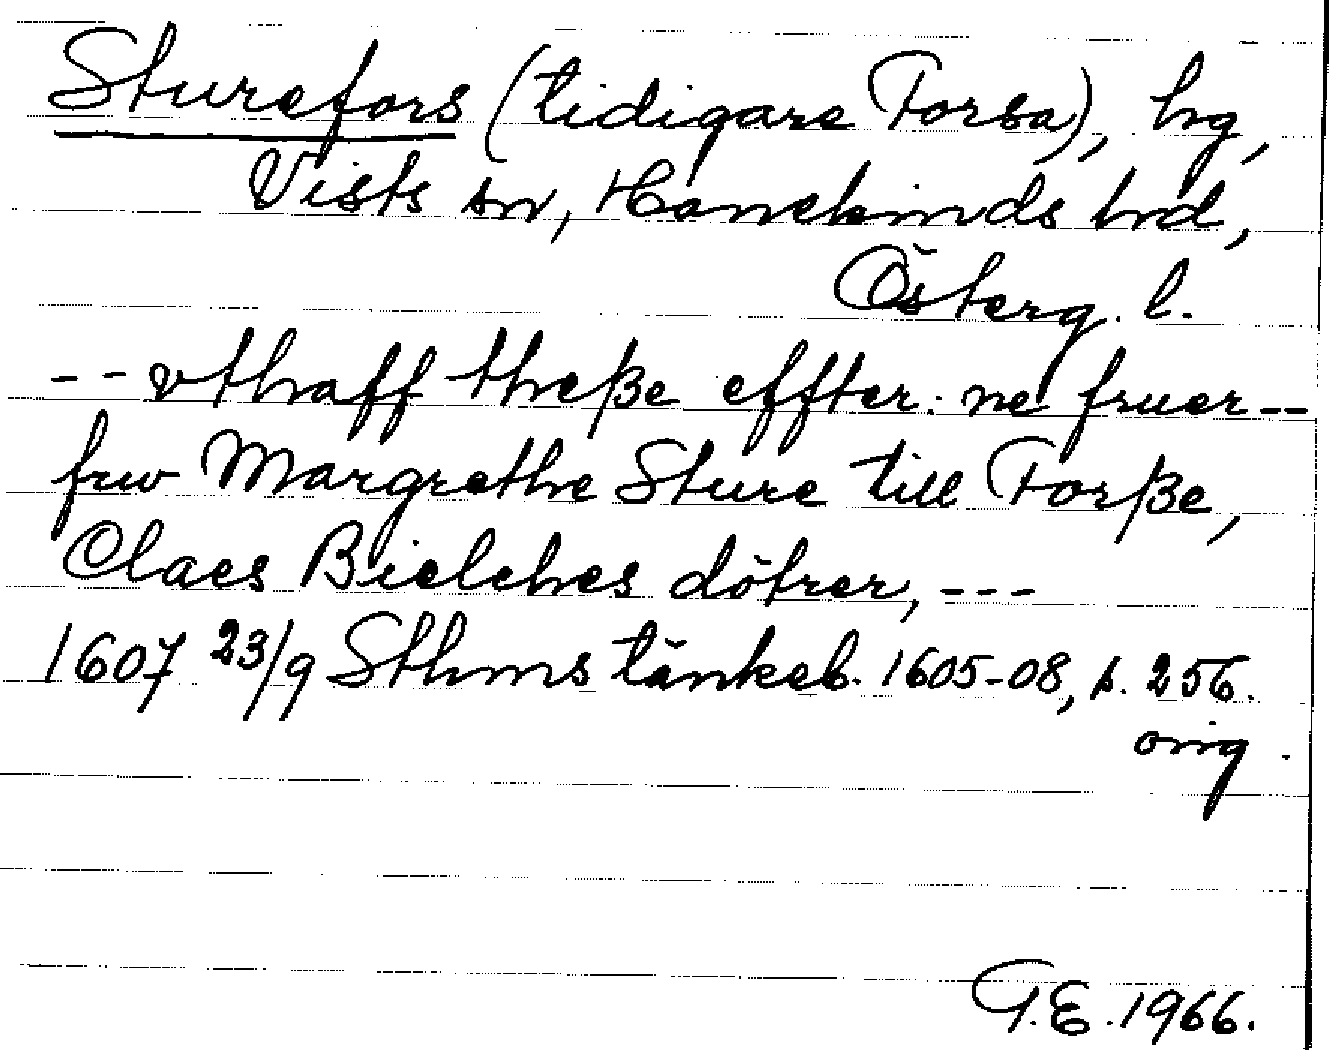 Sturefors (tidigare Forsa), hg,
Vists sn, Hanekinds hrd,
Österg. l.
-- vthaff threße effter: ne fruer --
fru Margrethe Sture till Forße,
Claes Bielches dötrer, ---
1607 23/9 Sthms tänkeb. 1605-08, s. 256.
orig.
G.E. 1966.